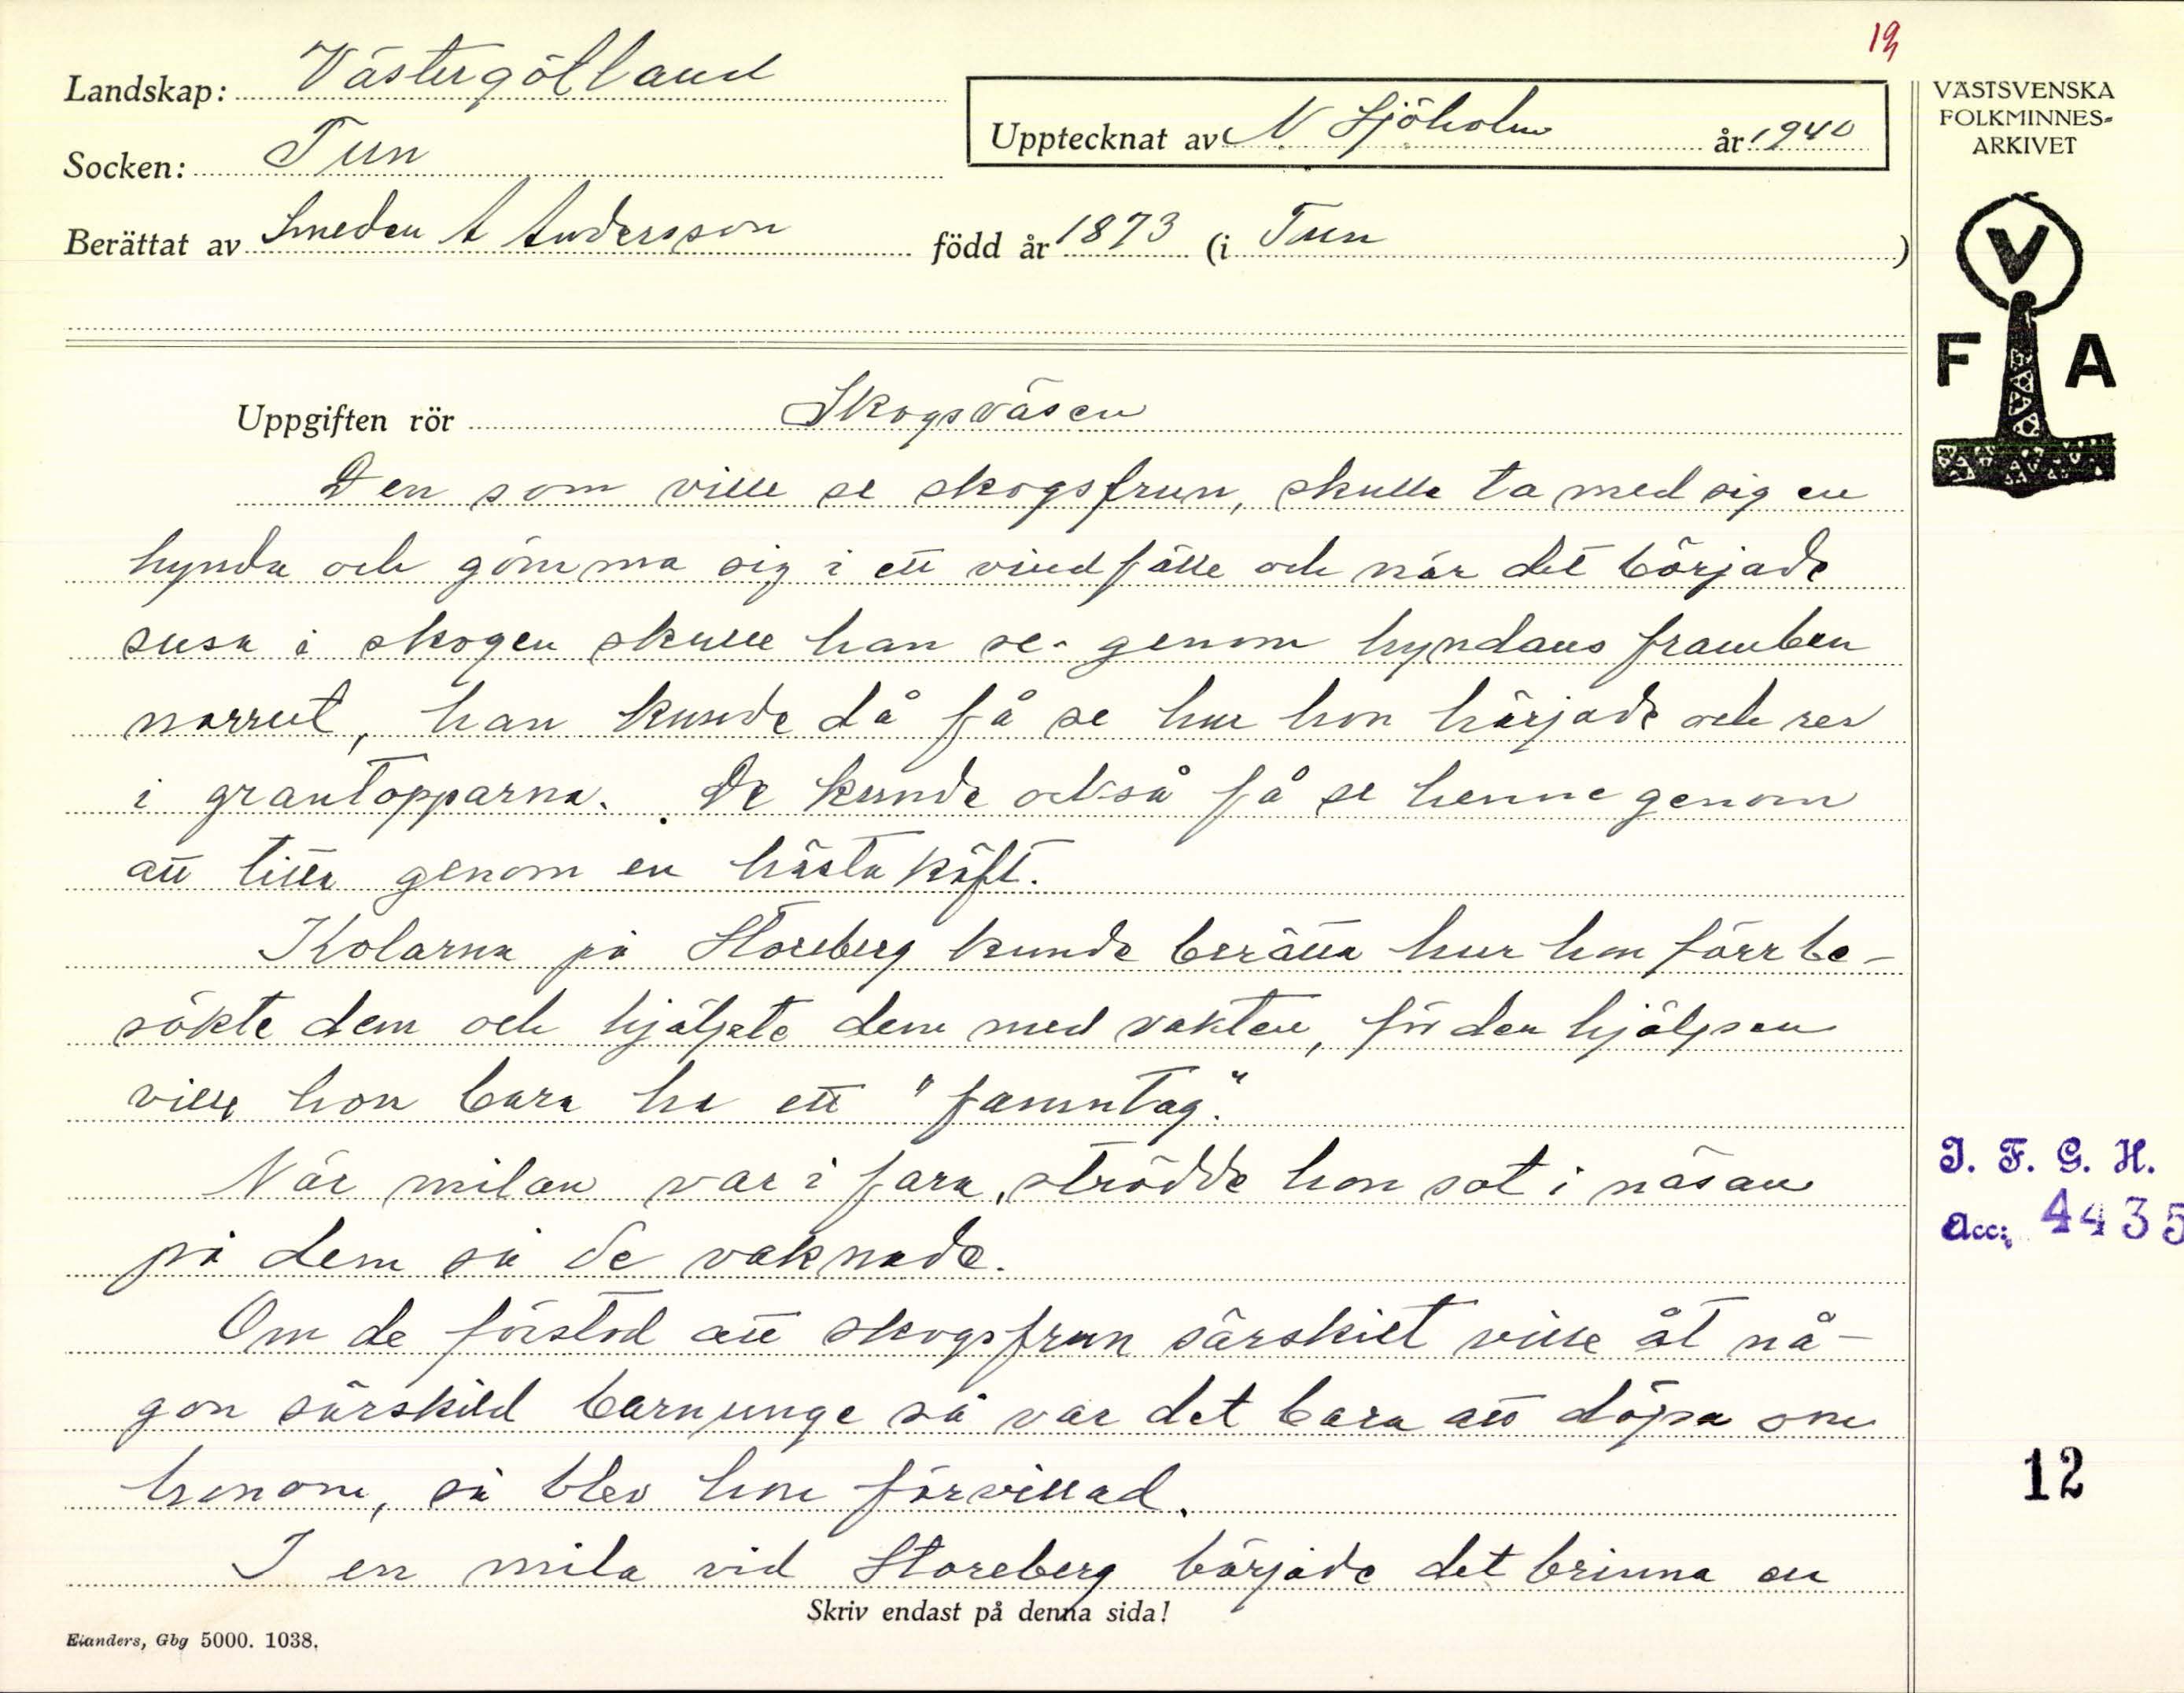 19
Landskap: Västergötland
Upptecknat av N Sjöholm år 1940
Socken: Tun
Berättat av Smeden A Andersson född år 1873 (i Tun )
VÄSTSVENSKA
FOLKMINNES-
ARKIVET
V
F A
Uppgiften rör Skogsväsen
Den som ville se skogsfrun, skulle ta med sig en
hynda och gömma sig i ett vindfälle och när det började
susa i skogen skulle han se genom hyndans framben
norrut, han kunde då få se hur hon härjade och rev
i grantopparna. De kunde också få se henne genom
att titta genom en hästakäft.
Kolarna på Storeberg kunde berätta hur hon förr be-
sökte dem och hjälpte dem med vakten, för den hjälpen
ville hon bara ha ett "famntag".
När milan var i fara, strödde hon sot i näsan
på dem så de vaknade.
Om de förstod att skogsfrun särskilt ville åt nå-
gon särskild barnunge så var det bara att döpa om
honom, så blev hon förvillad.
I en mila vid Storeberg började det brinna en
Skriv endast på denna sida!
Elanders, Gbg 5000. 1038.
I. F. G. H.
Acc: 4435
12